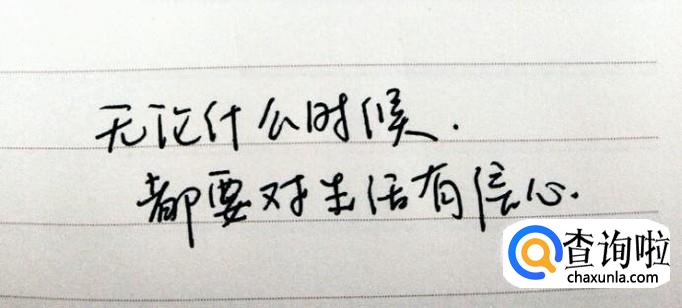 无论什么时候.
都要对生活有信心.
查询啦
chaxunla.com